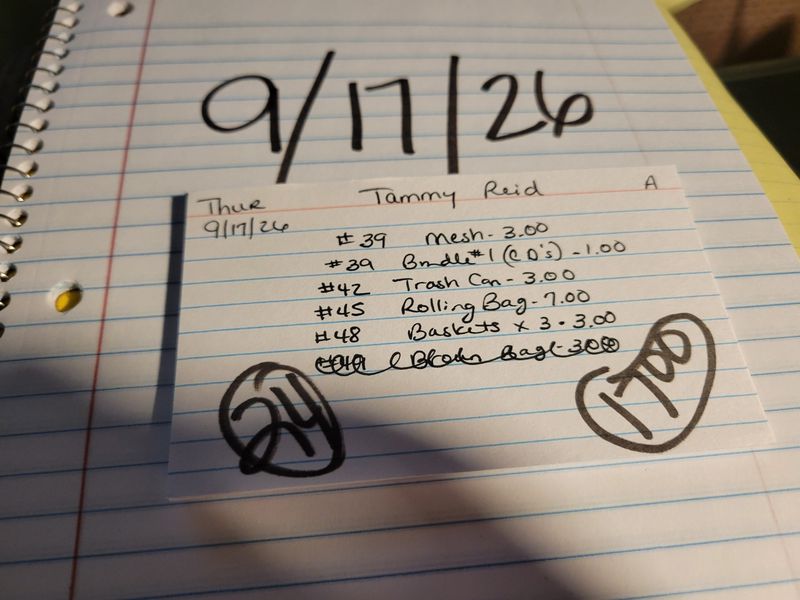 9/17/26
Thur Tammy Reid A
9/17/26
#39 Mesh - 3.00
#39 Bundle #1 (CD's) - 1.00
#42 Trash Can - 3.00
#45 Rolling Bag - 7.00
#48 Baskets x 3 - 3.00
Bag - 3.00
24
1700